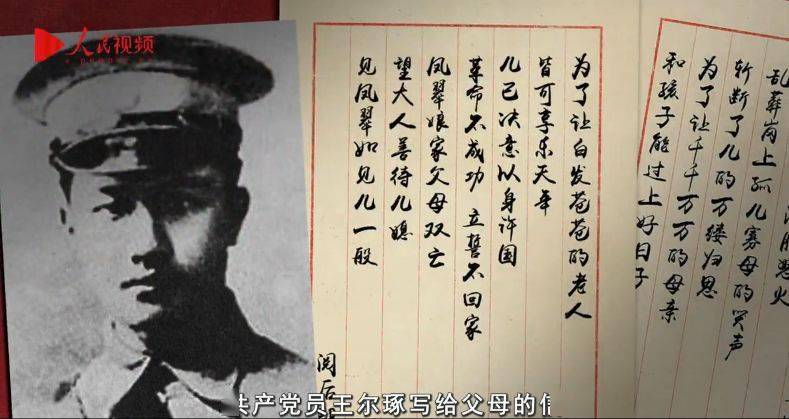 人民视频
乱葬岗上孤儿寡母的哭声
斩断了儿的万缕归思
为了让千千万万的母亲
和孩子能过上好日子
为了让白发苍苍的老人
皆可享乐天年
儿已决意以身许国
革命不成功 立誓不回家
凤翠娘家父母双亡
望大人善待儿媳
见凤翠如见儿一般
阅后
共产党员王尔琢写给父母的信